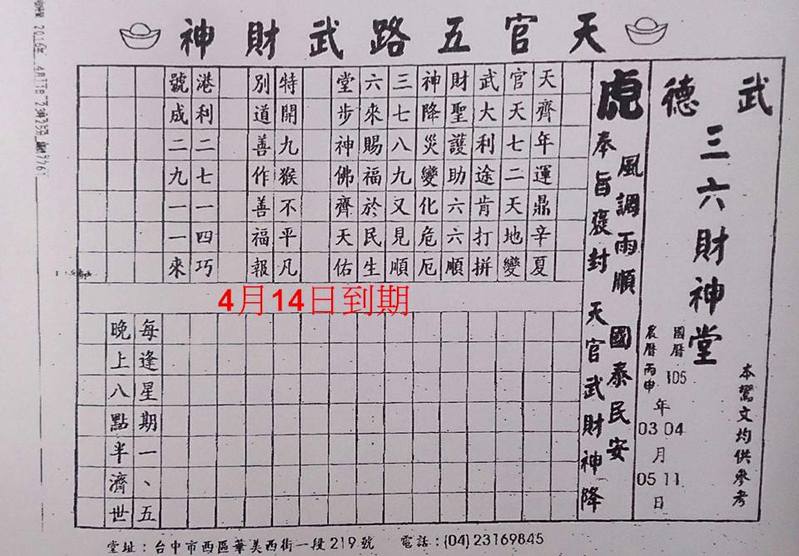 天官五路武財神
武德
三六財神堂
本鸞文均供參考
國曆105年04月11日
農曆丙申年03月05日
風調雨順 國泰民安
虎
奉旨褒封 天官武財神降
天齊年運鼎辛夏
官天七二天地變
武大利途肯打拼
財聖護助六六順
神降災變化危厄
三七八九又見順
六來賜福於民生
堂步神佛齊天佑
特開九猴不平凡
別道善作善福報
港利二七一四巧
號成二九一一來
4月14日到期
每逢星期一、五
晚上八點半濟世
堂址：台中市西區華美西街一段219號 電話：(04)23169845